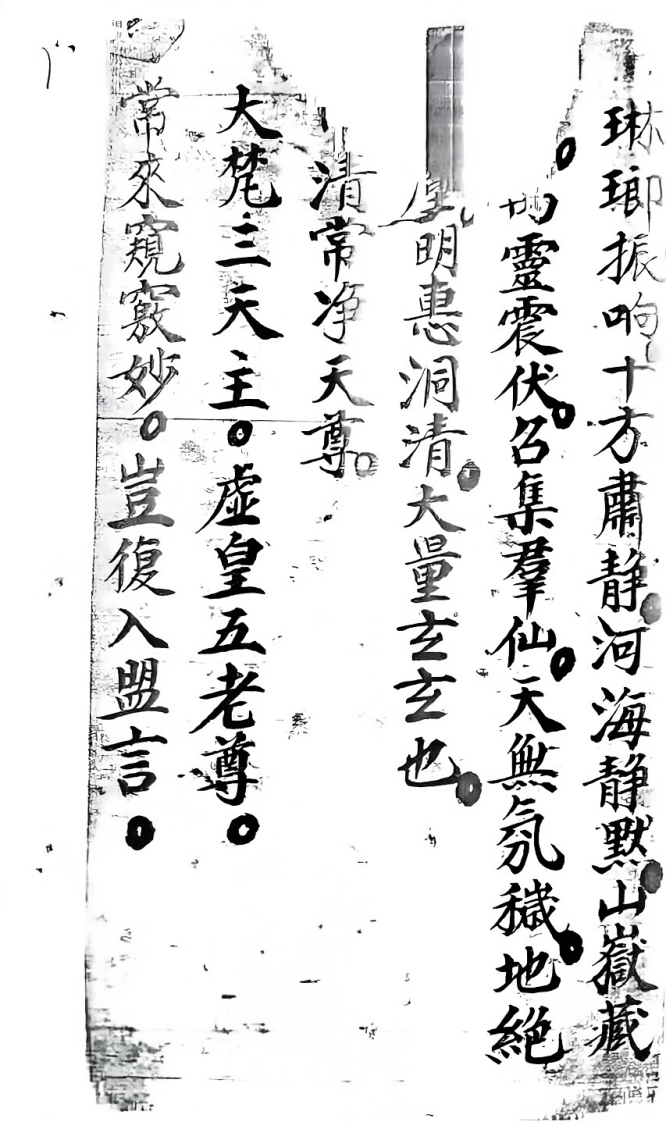 琳瑯振响十方肅静。河海静默。山嶽藏
。靈震伏。召集羣仙。天無氛穢。地絕
明惠洞清。大量玄玄也。
清常净天尊。
大梵三天主。虛皇五老尊。
常來窺竅妙。豈復入盟言。